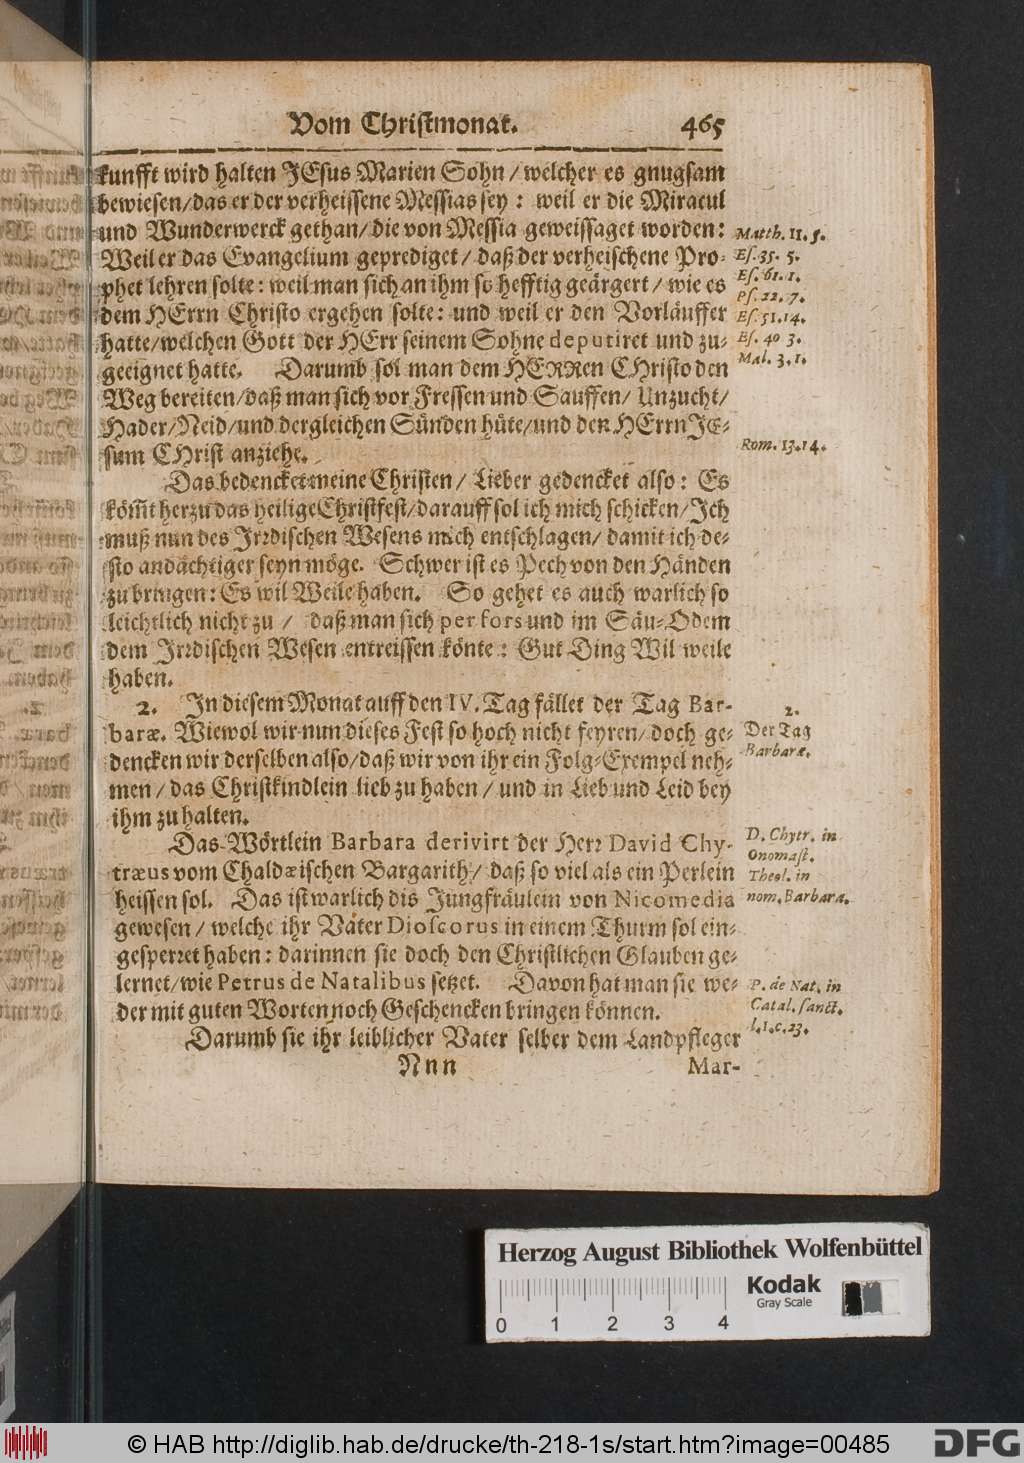 Vom Christmonat. 465
kunfft wird halten JEsus Marien Sohn / welcher es gnugsam
bewiesen/das er der verheissene Messias sey : weil er die Miracul
und Wunderwerck gethan/die von Messia geweissaget worden:
Weil er das Evangelium geprediget / daß der verheischene Pro-
phet lehren solte: weil man sich an ihm so hefftig geärgert / wie es
dem HErrn Christo ergehen solte: und weil er den Vorläuffer
hatte/welchen Gott der HErr seinem Sohne deputiret und zu-
geeignet hatte. Darumb sol man dem HERRen CHristo den
Weg bereiten/daß man sich vor Fressen und Sauffen/ Unzucht/
Hader/Neid/und dergleichen Sünden hüte/und den HErrn JE-
sum CHrist anziehe.
Matth. 11. 5.
Es. 35. 5.
Es. 61. 1.
Ps. 22. 7.
Es. 51. 14.
Es. 40 3.
Mal. 3. 1.
Rom. 13. 14.
Das bedencket meine Christen / Lieber gedencket also : Es
köm̃t herzu das heilige Christfest/darauff sol ich mich schicken/Jch
muß nun des Jrrdischen Wesens mich entschlagen/ damit ich de-
sto andächtiger seyn möge. Schwer ist es Pech von den Händen
zu bringen: Es wil Weile haben. So gehet es auch warlich so
leichtlich nicht zu / daß man sich per fors und im Säu-Odem
dem Jrrdischen Wesen entreissen könte : Gut Ding Wil weile
haben.
2. Jn diesem Monat auff den IV. Tag fället der Tag Bar-
baræ. Wiewol wir nun dieses Fest so hoch nicht feyren/ doch ge-
dencken wir derselben also/daß wir von ihr ein Folg-Exempel neh-
men / das Christkindlein lieb zu haben / und in Lieb und Leid bey
ihm zu halten.
2.
Der Tag
Barbaræ.
Das Wörtlein Barbara derivirt der Herr David Chy-
træus vom Chaldæischen Bargarith/ daß so viel als ein Perlein
heissen sol. Das ist warlich dis Jungfräulein von Nicomedia
gewesen / welche ihr Vater Dioscorus in einem Thurm sol ein-
gesperret haben : darinnen sie doch den Christlichen Glauben ge-
lernet/wie Petrus de Natalibus setzet. Davon hat man sie we-
der mit guten Worten noch Geschencken bringen können.
D. Chytr. in
Onomast.
Theol. in
nom. Barbara.
P. de Nat. in
Catal. sanct.
l. 1. c. 23.
Darumb sie ihr leiblicher Vater selber dem Landpfleger
Nnn Mar-
Herzog August Bibliothek Wolfenbüttel
Kodak
Gray Scale
0 1 2 3 4
© HAB http://diglib.hab.de/drucke/th-218-1s/start.htm?image=00485
DFG